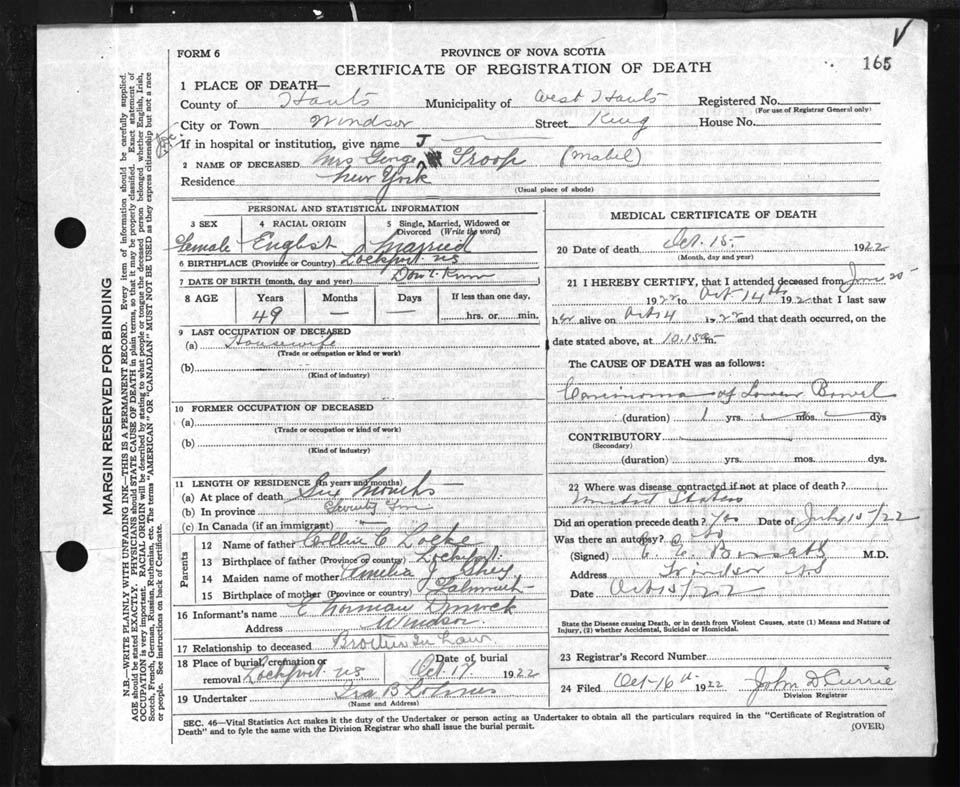 165
FORM 6
PROVINCE OF NOVA SCOTIA
CERTIFICATE OF REGISTRATION OF DEATH
MARGIN RESERVED FOR BINDING
N.B.—WRITE PLAINLY WITH UNFADING INK—THIS IS A PERMANENT RECORD. Every item of information should be carefully supplied.
AGE should be stated EXACTLY. PHYSICIANS should STATE CAUSE OF DEATH in plain terms, so that it may be properly classified. Exact statement of
OCCUPATION is very important. RACIAL ORIGIN will be described by stating to what people or tongue the deceased person belonged, whether English, Irish,
Scotch, French, German, Russian, Ruthenian, etc. The terms "AMERICAN" OR "CANADIAN" MUST NOT BE USED as they express citizenship but not a race
or people. See instructions on back of Certificate.
1 PLACE OF DEATH—
County of Hants Municipality of West Hants Registered No.
(For use of Registrar General only)
City or Town Windsor Street King House No.
If in hospital or institution, give name
2 NAME OF DECEASED Mrs George J Troop (Mabel)
Residence New York
(Usual place of abode)
PERSONAL AND STATISTICAL INFORMATION
3 SEX 4 RACIAL ORIGIN 5 Single, Married, Widowed or Divorced (Write the word)
Female English Married
6 BIRTHPLACE (Province or Country) Lockeport NS
7 DATE OF BIRTH (month, day and year) Don't Know
8 AGE Years Months Days If less than one day,
49 — — hrs. or min.
9 LAST OCCUPATION OF DECEASED
(a) Housewife
(Trade or occupation or kind of work)
(b)
(Kind of industry)
10 FORMER OCCUPATION OF DECEASED
(a)
(Trade or occupation or kind of work)
(b)
(Kind of industry)
11 LENGTH OF RESIDENCE (in years and months)
(a) At place of death Six Months
(b) In province
(c) In Canada (if an immigrant) —
Parents
12 Name of father C Locke
13 Birthplace of father (Province or country) Lockeport
14 Maiden name of mother Amelia J
15 Birthplace of mother (Province or country) Falmouth
16 Informant's name C Norman Dimock
Address Windsor
17 Relationship to deceased Brother In Law
18 Place of burial, cremation or removal Lockeport NS Date of burial Oct 17 1922
19 Undertaker Ira B Lohnes
(Name and Address)
MEDICAL CERTIFICATE OF DEATH
20 Date of death Oct. 15. 1922
(Month, day and year)
21 I HEREBY CERTIFY, that I attended deceased from June 20
1922 to Oct 14th 1922 that I last saw
her alive on Oct 14 1922 and that death occurred, on the
date stated above, at 10.15 m.
The CAUSE OF DEATH was as follows:
Carcinoma of Lower Bowel
(duration) 1 yrs. — mos. — dys
CONTRIBUTORY
(Secondary)
(duration) yrs. mos. dys.
22 Where was disease contracted if not at place of death?
United States
Did an operation precede death? Yes Date of July 15/22
Was there an autopsy? No
(Signed) M.D.
Address Windsor NS
Date Oct 15/22
State the Disease causing Death, or in death from Violent Causes, state (1) Means and Nature of
Injury, (2) whether Accidental, Suicidal or Homicidal.
23 Registrar's Record Number
24 Filed Oct 16th 1922 John D Currie
Division Registrar
SEC. 46—Vital Statistics Act makes it the duty of the Undertaker or person acting as Undertaker to obtain all the particulars required in the "Certificate of Registration of
Death" and to fyle the same with the Division Registrar who shall issue the burial permit.
(OVER)